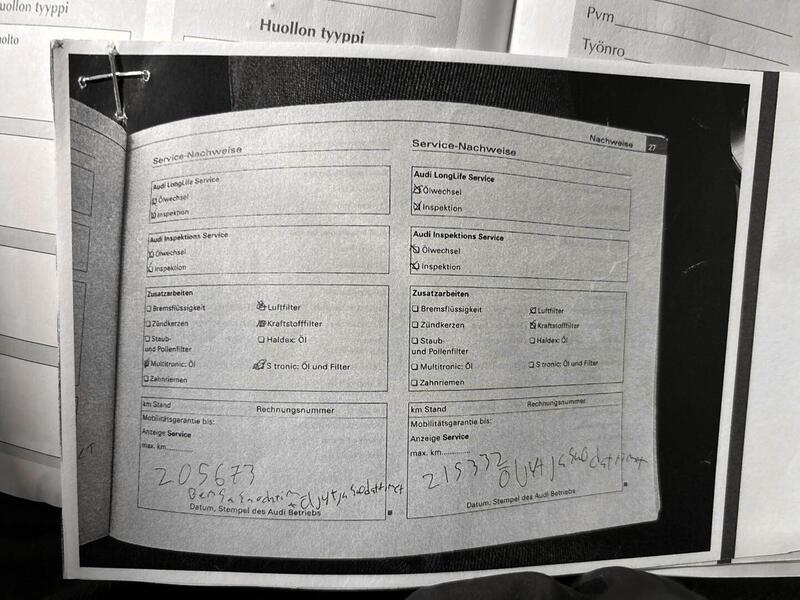 uollon tyyppi
Huollon tyyppi
Pvm
Työnro
Service-Nachweise
Audi LongLife Service
Ölwechsel
Inspektion
Audi Inspektions Service
Ölwechsel
Inspektion
Zusatzarbeiten
Bremsflüssigkeit
Luftfilter
Zündkerzen
Kraftstofffilter
Staub-
und Pollenfilter
Haldex: Öl
Multitronic: Öl
S tronic: Öl und Filter
Zahnriemen
km Stand
Rechnungsnummer
Mobilitätsgarantie bis:
Anzeige Service
max. km............
205673
Datum, Stempel des Audi Betriebs
Nachweise 27
Service-Nachweise
Audi LongLife Service
Ölwechsel
Inspektion
Audi Inspektions Service
Ölwechsel
Inspektion
Zusatzarbeiten
Bremsflüssigkeit
Luftfilter
Zündkerzen
Kraftstofffilter
Staub-
und Pollenfilter
Haldex: Öl
Multitronic: Öl
S tronic: Öl und Filter
Zahnriemen
km Stand
Rechnungsnummer
Mobilitätsgarantie bis:
Anzeige Service
max. km............
215332
öljyt ja suodattimet
Datum, Stempel des Audi Betriebs